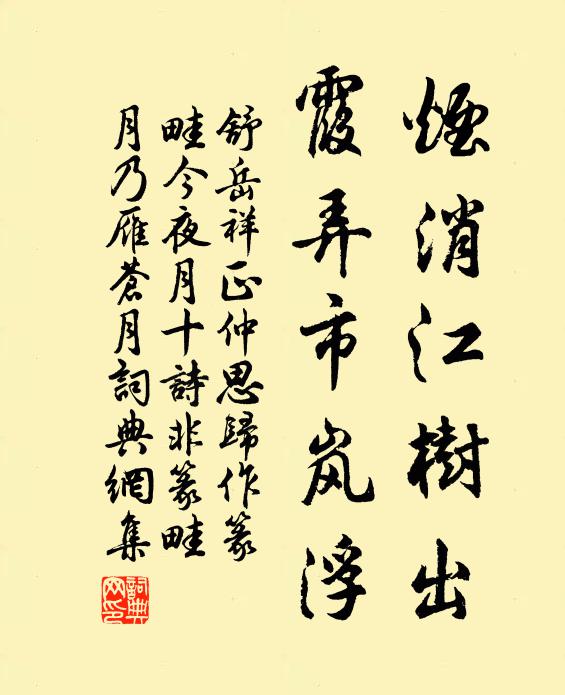 煙消江樹出
霞弄市岚浮
舒岳祥正仲思歸作篆
畦今夜月十詩非篆畦
月乃雁蒼月詞典網集
詞典网印